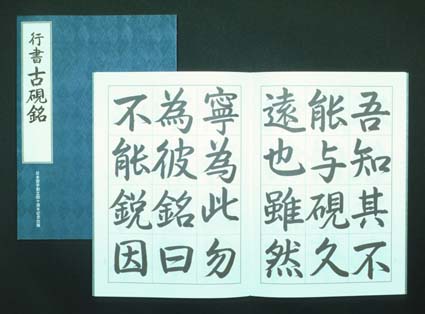 行書 古硯銘
吾知其不
能与硯久
遠也雖然
寧為此勿
為彼銘曰
不能鋭因